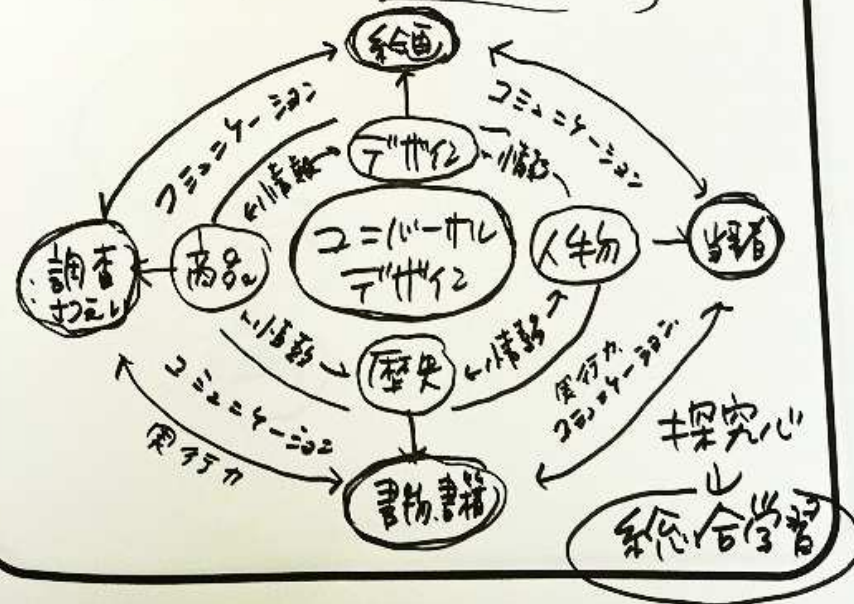 絵画
コミュニケーション
コミュニケーション
デザイン
情報
情報
ユニバーサル
デザイン
調査
商品
人物
当事者
情報
情報
歴史
コミュニケーション
実行力
実行力
コミュニケーション
書物、書籍
探究心
↓
総合学習